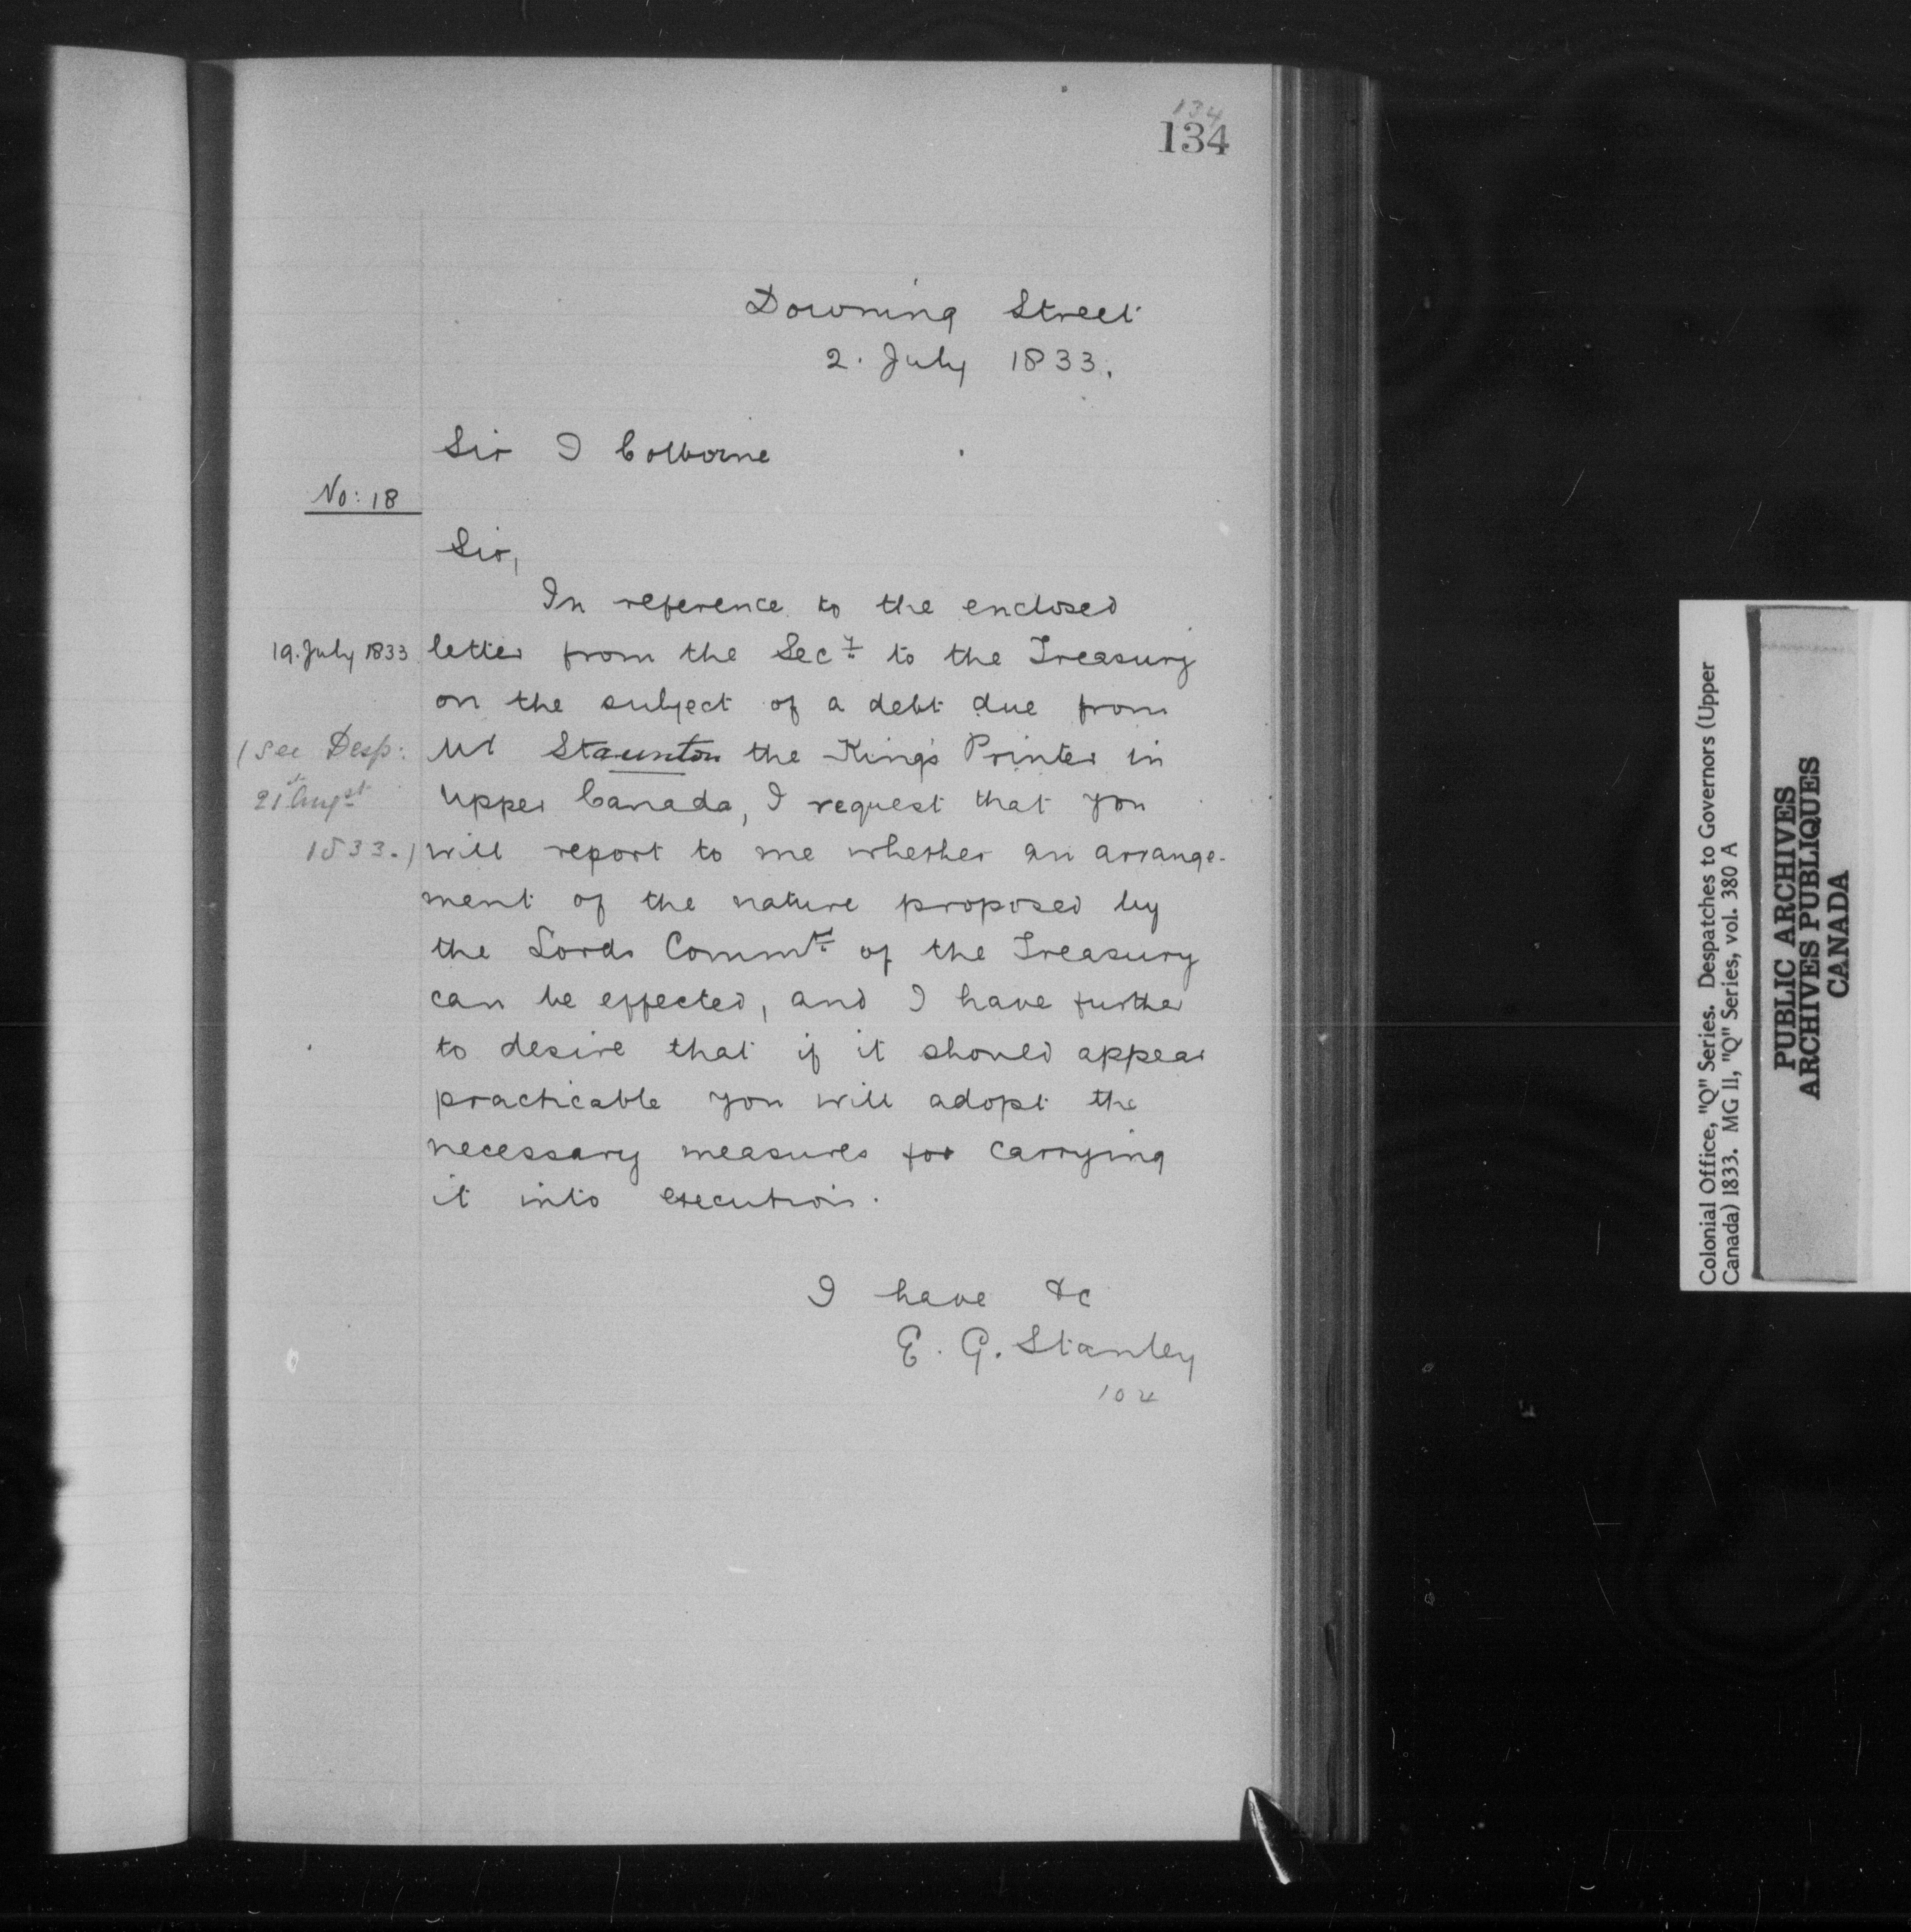 134
134
Downing Street
2. July 1833.
Sir J Colborne
No: 18
Sir,
In reference to the enclosed
19. July 1833 letter from the Secy. to the Treasury
on the subject of a debt due from
(See Desp: Mr Staunton the King's Printer in
21st Augst Upper Canada, I request that you
1833.) will report to me whether an arrange-
ment of the nature proposed by
the Lords Commrs. of the Treasury
can be effected, and I have further
to desire that if it should appear
practicable you will adopt the
necessary measures for carrying
it into execution.
I have &c
E. G. Stanley
104
Colonial Office, "Q" Series. Despatches to Governors (Upper
Canada) 1833. MG 11, "Q" Series, vol. 380 A
PUBLIC ARCHIVES
ARCHIVES PUBLIQUES
CANADA